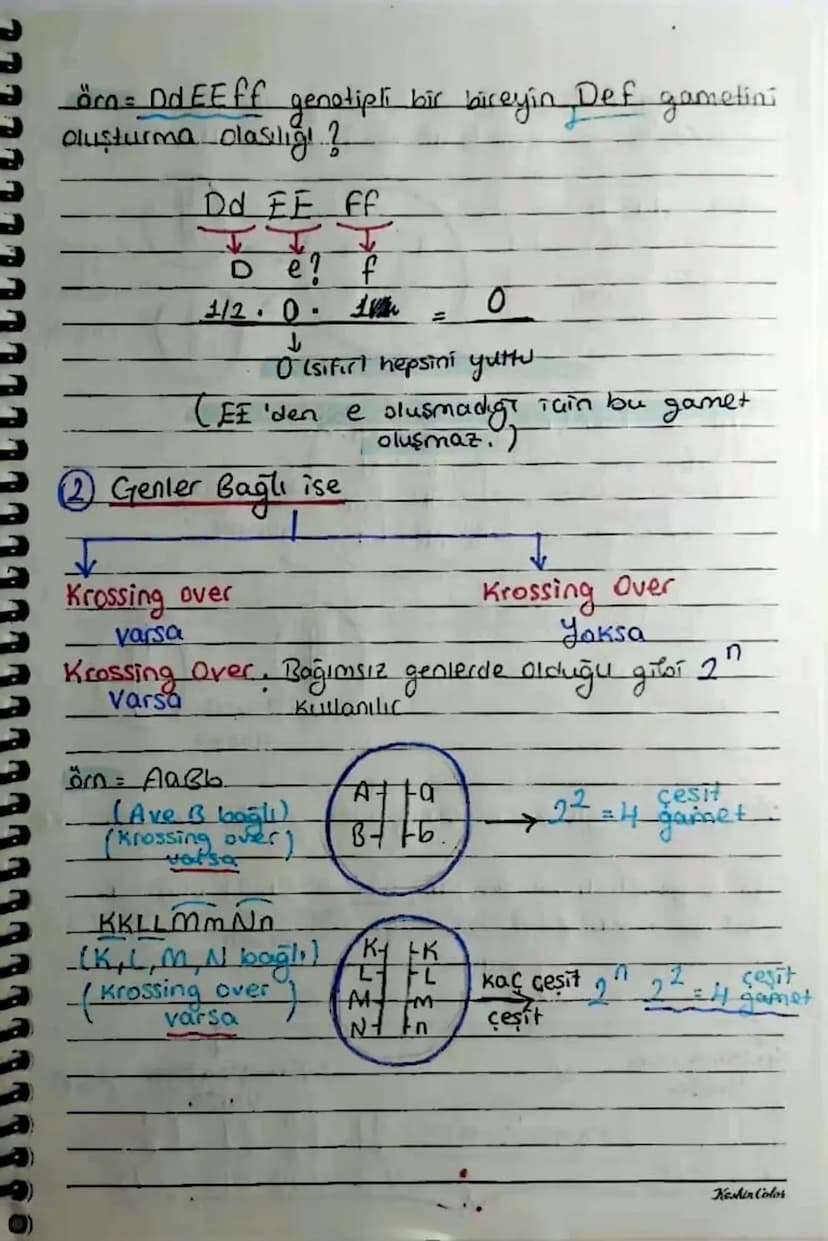 örn = DdEEff genotipli bir bireyin Def gametini
oluşturma olasılığı ?
Dd EE ff
D e? f
1/2 . 0 . 1 = 0
0 (sıfır) hepsini yuttu
( EE 'den e oluşmadığı için bu gamet
oluşmaz. )
2 Genler Bağlı ise
Krossing over
varsa
Krossing Over
Yoksa
Krossing Over
Varsa
. Bağımsız genlerde olduğu gibi 2ⁿ
kullanılır
örn = AaBb
(A ve B bağlı)
(Krossing over)
varsa
A a
B b
2² = 4 çeşit
gamet
KKLLMmNn
(K, L, M, N bağlı)
( Krossing over )
varsa
K K
L L
M m
N n
kaç çeşit
çeşit
2ⁿ 2² = 4 çeşit
gamet
Keskin Color